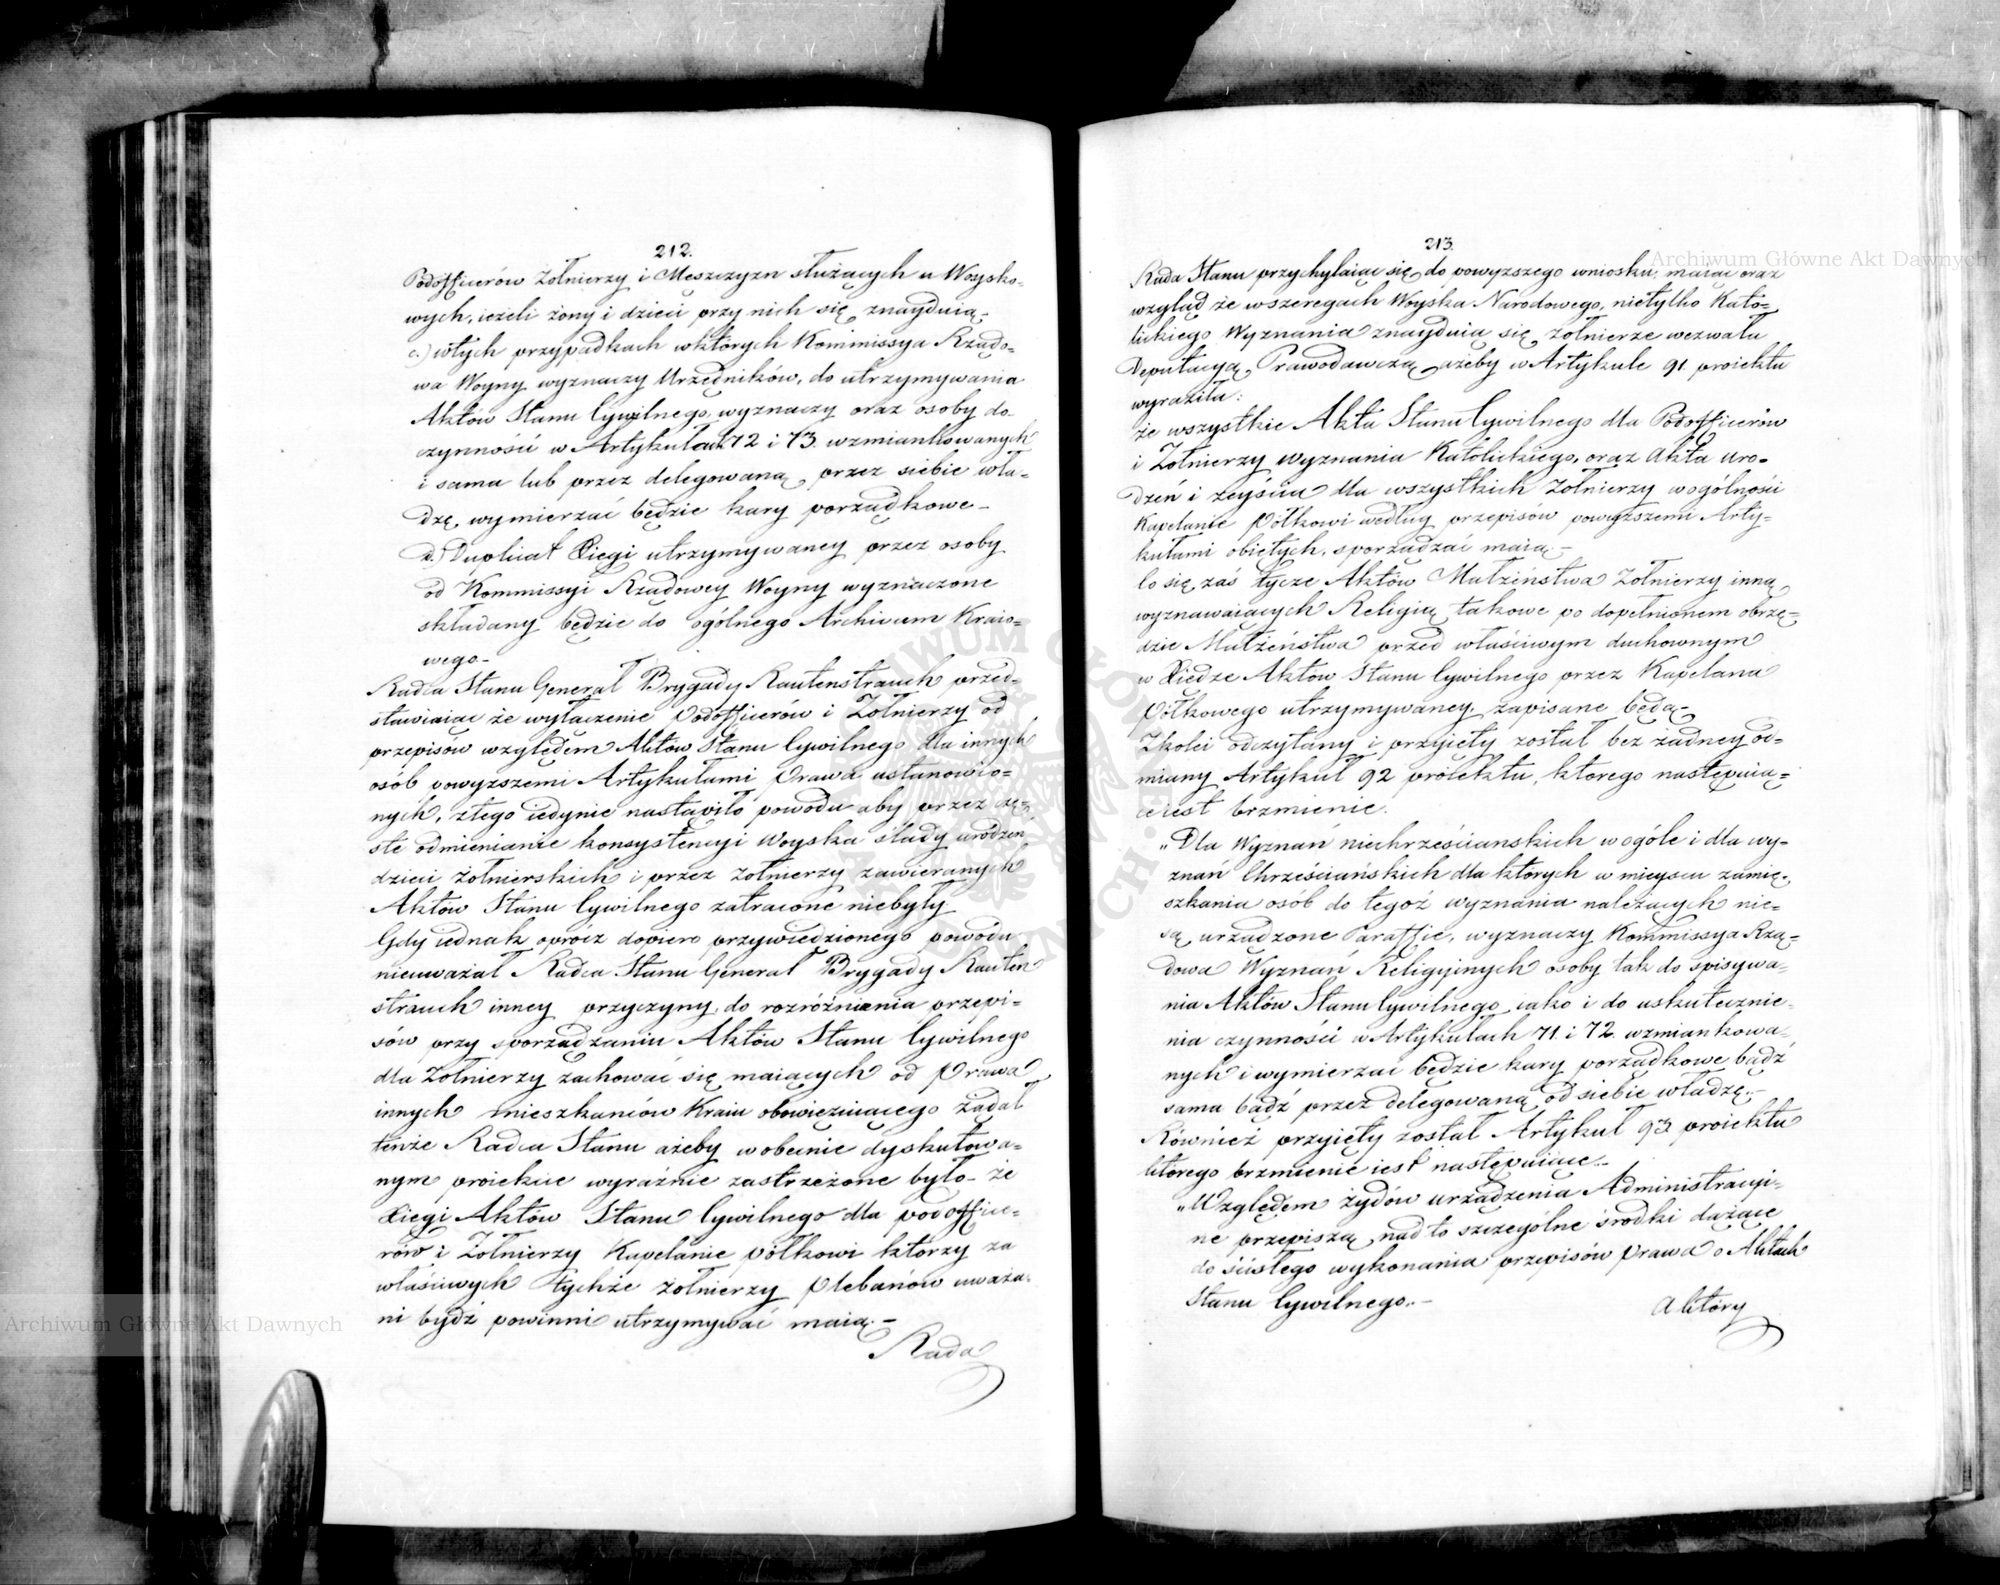 212.
Podofficerów Żołnierzy i Męszczyzn służących u Woysko-
wych, ieżeli żony i dzieci przy nich się znayduią.
c.) w tych przypadkach w których Kommissya Rządo-
wa Woyny wyznaczy Urzędników, do utrzymywania
Aktów Stanu Cywilnego, wyznaczy oraz osoby do
czynności w Artykułach 72 i 73. wzmiankowanych
i sama lub przez delegowaną przez siebie wła-
dzę, wymierzać będzie kary porządkowe_
d.) Duplicat Xięgi utrzymywaney przez osoby
od Kommissyi Rządowey Woyny wyznaczone
składany będzie do ogólnego Archivum Kraio-
wego_
Radca Stanu Generał Brygady Rautenstrauch przed-
stawiaiąc że wyłączenie Podofficerów i Żołnierzy od
przepisów względem Aktów Stanu Cywilnego dla innych
osób powyższemi Artykułami Prawa ustanowio-
nych, z tego iedynie nastąpiło powodu aby przez czę-
ste odmienianie konsystencyi Woyska ślady urodzeń
dzieci żołnierskich i przez żołnierzy zawieranych
Aktów Stanu Cywilnego zatracone niebyły
Gdy iednak oprócz dopiero przywiedzionego powodu
nieuważał Radca Stanu Generał Brygady Rauten
strauch inney przyczyny, do rozróżnienia przepi-
sów przy sporządzaniu Aktów Stanu Cywilnego
dla Żołnierzy zachować się maiących od Prawa
innych mieszkańców Kraiu obowięzuiącego żądał
tenże Radca Stanu ażeby w obecnie dyskutowa-
nym proiekcie wyraźnie zastrzeżone było_ że
Xięgi Aktów Stanu Cywilnego dla podoffice-
rów i Żołnierzy Kapelanie półkowi którzy za
właściwych tychże żołnierzy Plebanów uważa-
ni bydź powinni utrzymywać maią._
Rada
213.
Rada Stanu przychylaiąc się do powyższego wniosku, maiąc oraz
wzgląd że w szeregach Woyska Narodowego, nietylko Kato-
lickiego Wyznania znayduią się żołnierze wezwała
Deputacyą Prawodawczą ażeby w Artykule 91 proiektu
wyraziła:
że wszystkie Akta Stanu Cywilnego dla Podofficerów
i Żołnierzy Wyznania Katolickiego, oraz Akta uro-
dzeń i zeyścia dla wszystkich Żołnierzy w ogólności
Kapelanie Półkowi według przepisów powyższemi Arty-
kułami obiętych, sporządzać maią._
Co się zaś tycze Aktów Małżeństwa Żołnierzy inną
wyznawaiących Religią takowe po dopełnionem obrzę-
dzie Małżeństwa przed właściwym duchownym
w Xiędze Aktów Stanu Cywilnego przez Kapelana
Półkowego utrzymywaney, zapisane będą_
Z kolei odczytany i przyięty został bez żadney od-
miany Artykuł 92 proiektu, którego następuią-
ce iest brzmienie.
„Dla Wyznań niechrześcianskich w ogóle i dla wy-
znań Chrześciańskich dla których w mieyscu zamię-
szkania osób do tegoż wyznania należących nie-
są urządzone Paraffie, wyznaczy Kommissya Rzą-
dowa Wyznań Religiynych osoby tak do spisywa-
nia Aktów Stanu Cywilnego iako i do uskutecznie-
nia czynności w Artykułach 71. i 72. wzmiankowa-
nych i wymierzać będzie kary porządkowe bądź
sama bądź przez delegowaną od siebie władzę._
Również przyięty został Artykuł 93 proiektu
którego brzmienie iest następuiące._
„Względem żydów urządzenia Administracyi-
ne przepiszą nadto szczególne środki dążące
do ścisłego wykonania przepisów Prawa o Aktach
Stanu Cywilnego._
A który
Archiwum Główne Akt Dawnych
Archiwum Główne Akt Dawnych